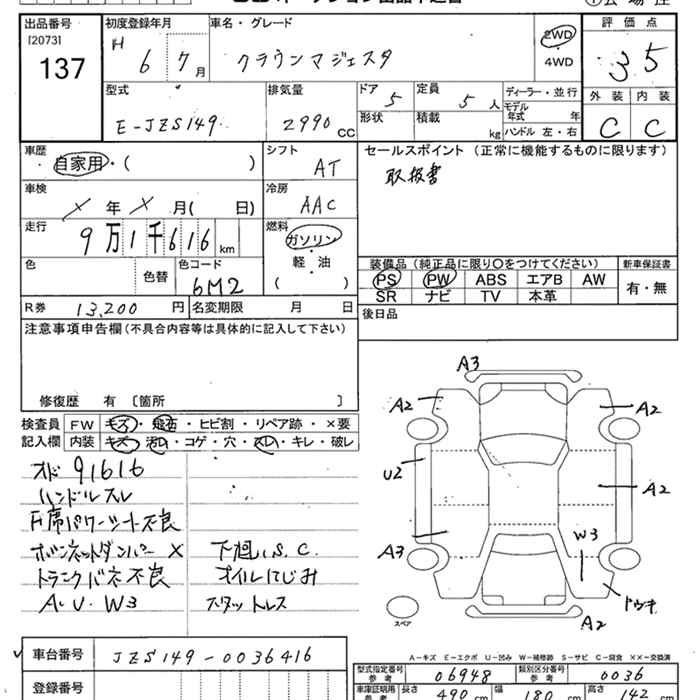 出品番号 初度登録年月 車名・グレード 評価点
[2073] H 6 7月 クラウンマジェスタ 2WD 3.5
137 4WD
外装 内装
C C
型式 排気量 ドア 定員 ディーラー・並行
E-JZS149. 2990cc 5 5人 モデル年式 年
形状 積載 kg ハンドル 左・右
車歴 シフト セールスポイント（正常に機能するものに限ります）
・自家用・（ ） AT 取扱書
車検 冷房
×年×月（ 日） AAC
走行 燃料
9万1千616km ガソリン・軽・油
（ ）
装備品（純正品に限り〇をつけてください） 新車保証書
色 色替 色コード 6M2
PS PW ABS エアB AW 有・無
SR ナビ TV 本革
R券 13,200円 名変期限 月 日 後日品
注意事項申告欄（不具合内容等は具体的に記入して下さい）
修復歴 有〔箇所 〕
検査員 FW キズ・飛石・ヒビ割・リペア跡・×要
記入欄 内装 キズ・汚れ・コゲ・穴・スレ・キレ・破レ
オド 91616
ハンドルスレ
F席パワーシート不良
ボンネットダンパー× 下廻りS.C.
トランクバネ不良 オイルにじみ
A.U.W3 スタットレス
A3
A2 A2
U2 A2
A3 W3
ドウキ
A2
スペア
A-キズ E-エクボ U-凹み W-補修跡 S-サビ C-腐食 ××-交換済
車台番号 JZS149-0036416
型式指定番号 参考 06948 類別区分番号 参考 0036
登録番号
車庫証明用 参考 長さ 490cm 幅 180cm 高さ 142cm